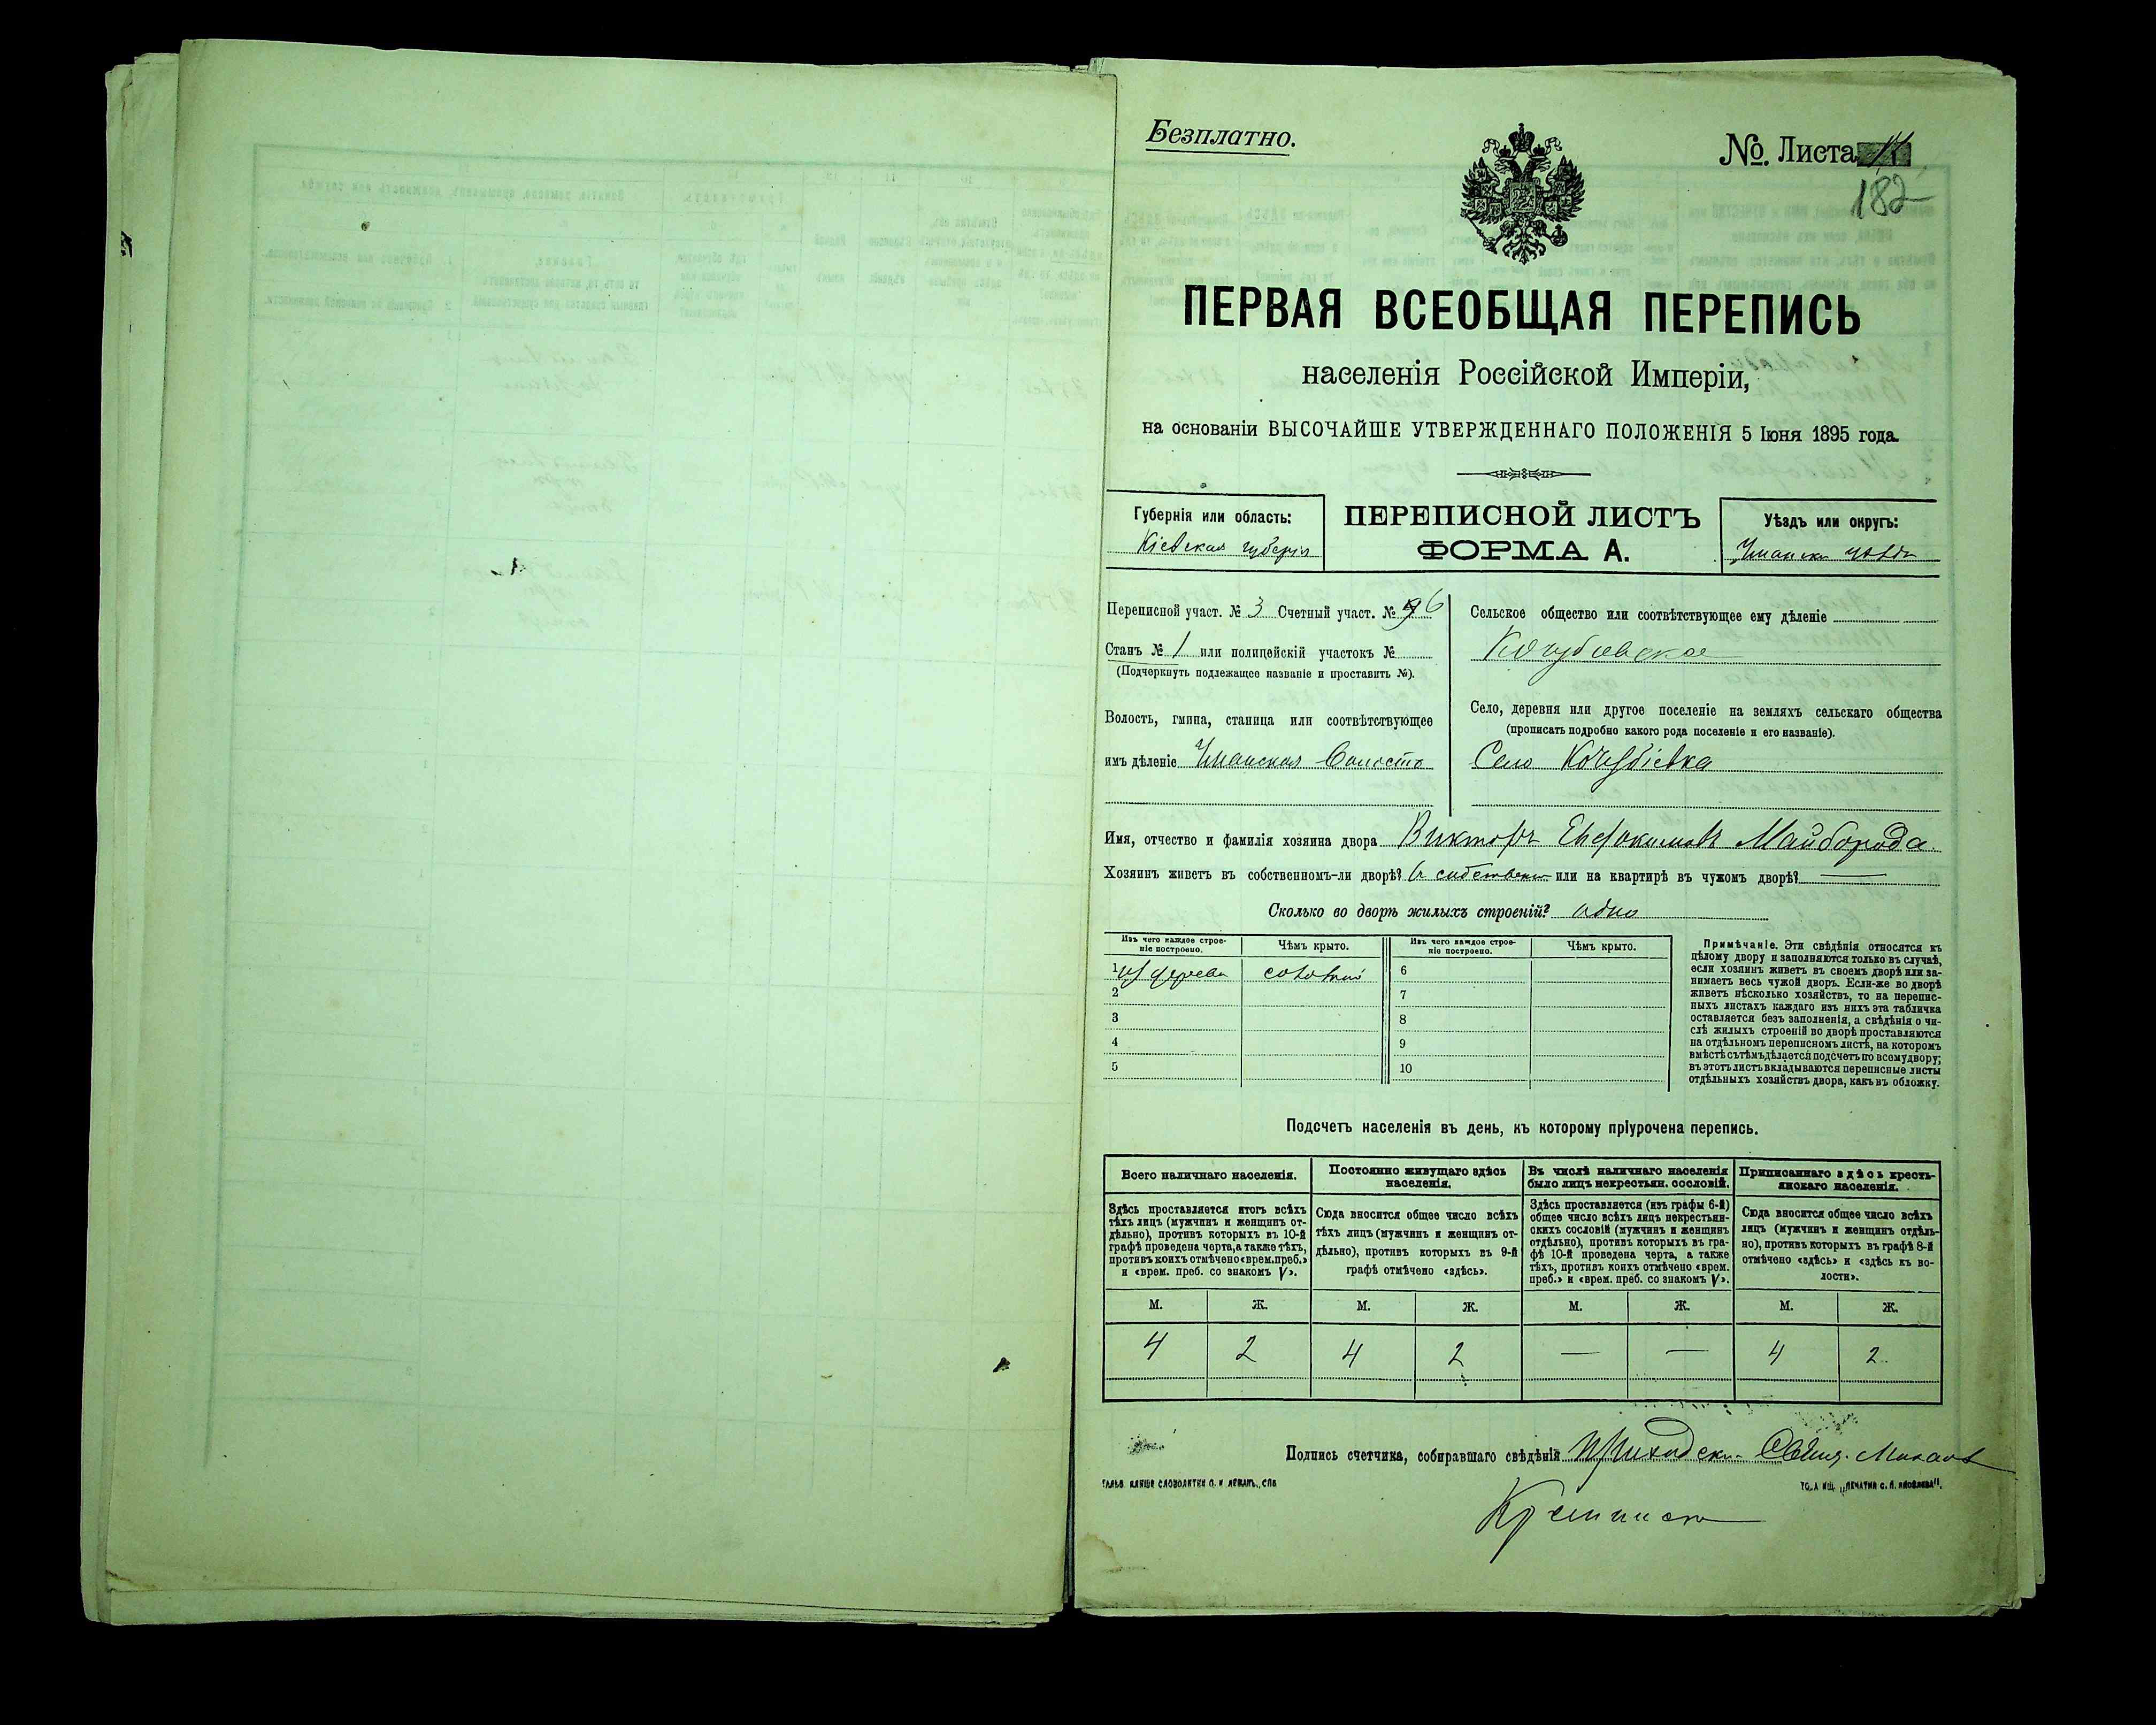 Безплатно.
№. Листа
182
ПЕРВАЯ ВСЕОБЩАЯ ПЕРЕПИСЬ
населенія Россійской Имперіи,
на основаніи ВЫСОЧАЙШЕ УТВЕРЖДЕННАГО ПОЛОЖЕНІЯ 5 Іюня 1895 года
Губернія или область:
Кіевская губернія
ПЕРЕПИСНОЙ ЛИСТЪ
ФОРМА А.
Уѣздъ или округъ:
Переписной участ. № 3 Счетный участ. № 6
Станъ № 1 или полицейскій участокъ №
(Подчеркнуть подлежащее названіе и проставить №).
Волость, гмина, станица или соотвѣтствующее
имъ дѣленіе Уманская Волость
Сельское общество или соотвѣтствующее ему дѣленіе
Кочубіевское
Село, деревня или другое поселеніе на земляхъ сельскаго общества
(прописать подробно какого рода поселеніе и его названіе).
Село Кочубіевка
Имя, отчество и фамилія хозяина двора Викторъ Евфокимовъ Майборода.
Хозяинъ живетъ въ собственномъ-ли дворѣ? или на квартирѣ въ чужомъ дворѣ? —
Сколько во дворѣ жилыхъ строеній? одно
Изъ чего каждое строе-
ніе построено.
Чѣмъ крыто.
Изъ чего каждое строе-
ніе построено.
Чѣмъ крыто.
1 из дерева
6
2
7
3
8
4
9
5
10
Примѣчаніе. Эти свѣдѣнія относятся къ
цѣлому двору и заполняются только въ случаѣ,
если хозяинъ живетъ въ своемъ дворѣ или за-
нимаетъ весь чужой дворъ. Если-же во дворѣ
живетъ нѣсколько хозяйствъ, то на перепис-
ныхъ листахъ каждаго изъ нихъ эта табличка
оставляется безъ заполненія, а свѣдѣнія о чи-
слѣ жилыхъ строеній во дворѣ проставляются
на отдѣльномъ переписномъ листѣ, на которомъ
вмѣстѣ съ тѣмъ дѣлается подсчетъ по всему двору;
въ этотъ листъ вкладываются переписные листы
отдѣльныхъ хозяйствъ двора, какъ въ обложку.
Подсчетъ населенія въ день, къ которому пріурочена перепись.
Всего наличнаго населенія.
Здѣсь проставляется итогъ всѣхъ
тѣхъ лицъ (мужчинъ и женщинъ от-
дѣльно), противъ которыхъ въ 10-й
графѣ проведена черта, а также тѣхъ,
противъ коихъ отмѣчено «врем. преб.»
и «врем. преб. со знакомъ V».
Постоянно живущаго здѣсь
населенія.
Сюда вносится общее число всѣхъ
тѣхъ лицъ (мужчинъ и женщинъ от-
дѣльно), противъ которыхъ въ 9-й
графѣ отмѣчено «здѣсь».
Въ числѣ наличнаго населенія
было лицъ некрестьян. сословій.
Здѣсь проставляется (изъ графы 6-й)
общее число всѣхъ лицъ некрестьян-
скихъ сословій (мужчинъ и женщинъ
отдѣльно), противъ которыхъ въ гра-
фѣ 10-й проведена черта, а также
тѣхъ, противъ коихъ отмѣчено «врем.
преб.» и «врем. преб. со знакомъ V».
Приписаннаго здѣсь кресть-
янскаго населенія.
Сюда вносится общее число всѣхъ
лицъ (мужчинъ и женщинъ отдѣль-
но), противъ которыхъ въ графѣ 8-й
отмѣчено «здѣсь» и «здѣсь къ во-
лости».
М. Ж. М. Ж. М. Ж. М. Ж.
4 2 4 2 — — 4 2.
Подпись счетчика, собиравшаго свѣдѣнія